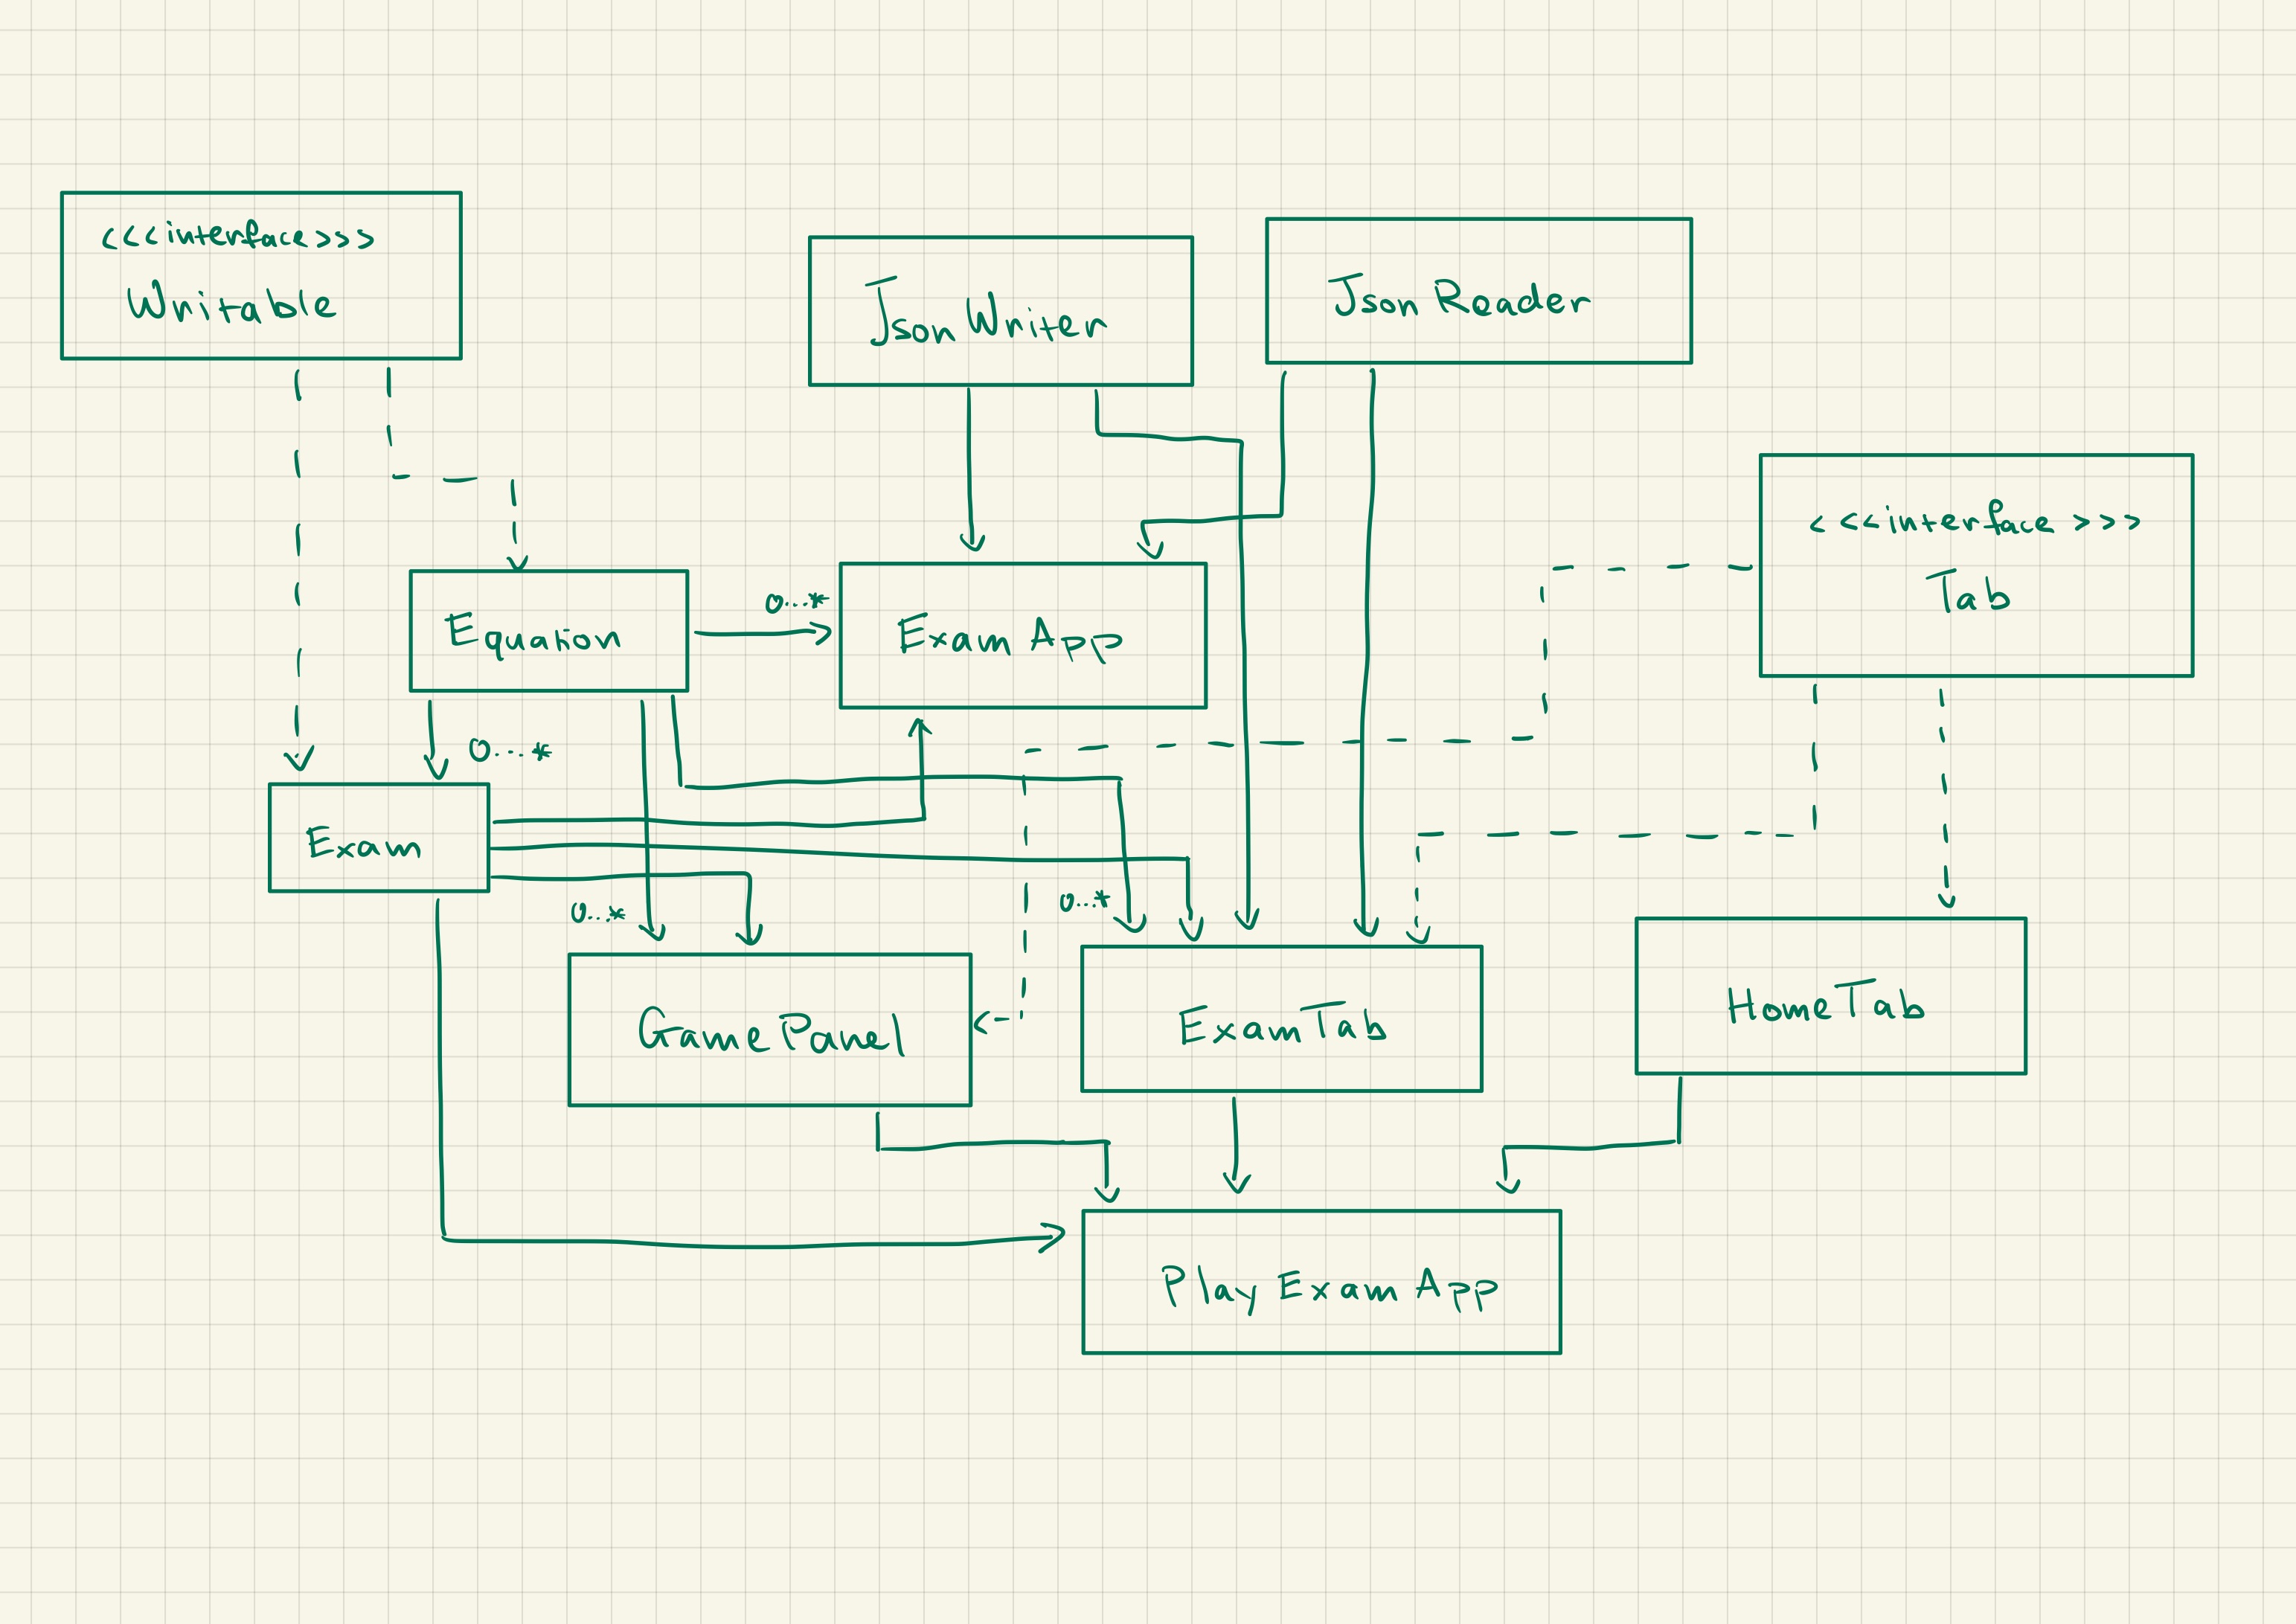 <<<interface>>>
Writable
Json Writer
Json Reader
<<<interface>>>
Tab
Equation
0...*
Exam App
0...*
Exam
0...*
0...*
GamePanel
ExamTab
HomeTab
Play Exam App